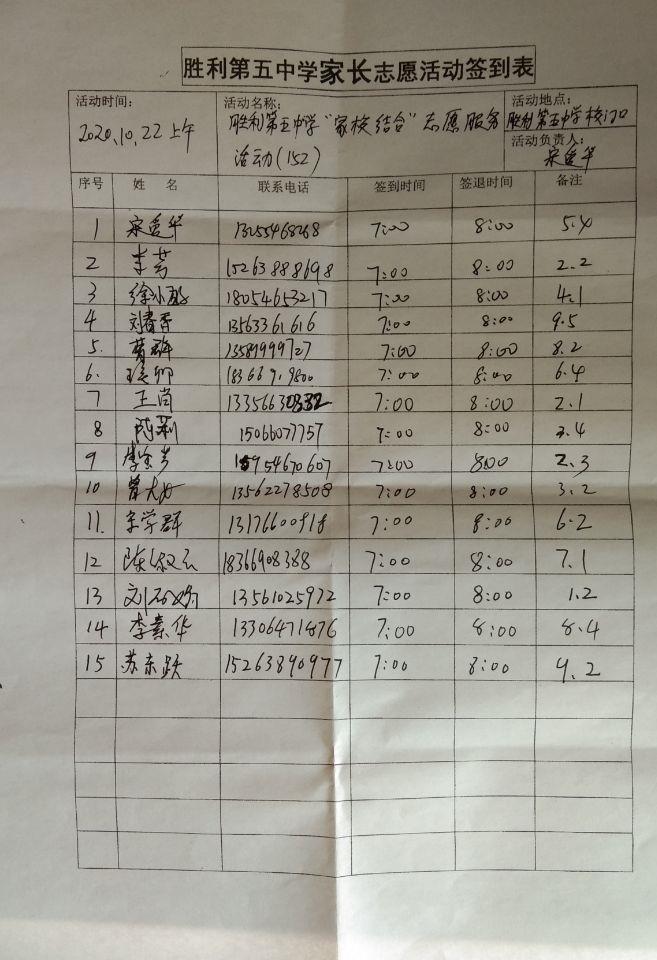 胜利第五中学家长志愿活动签到表
活动时间: 活动名称: 活动地点:
2020.10.22上午 胜利第五中学“家校结合”志愿服务 胜利第五中学校门口
活动(152) 活动负责人:
宋爱华
序号 姓 名 联系电话 签到时间 签退时间 备注
1 宋爱华 13255468268 7:00 8:00 5.4
2 李芸 15263888698 7:00 8:00 2.2
3 18054653217 7:00 8:00 4.1
4 刘春香 13563361616 7:00 8:00 9.5
5. 13589999727 7:00 8:00 8.2
6. 7:00 8:00 6.4
7 王尚 7:00 8:00 2.1
8 陈莉 15066077757 7:00 8:00 3.4
9 15954670607 7:00 8:00 2.3
10 13562278508 7:00 8:00 3.2
11. 宋学群 13176600918 7:00 8:00 6.2
12 陈 18366908388 7:00 8:00 7.1
13 刘 13561025972 7:00 8:00 1.2
14 李素华 13306471876 7:00 8:00 8.4
15 苏东跃 15263890977 7:00 8:00 9.2